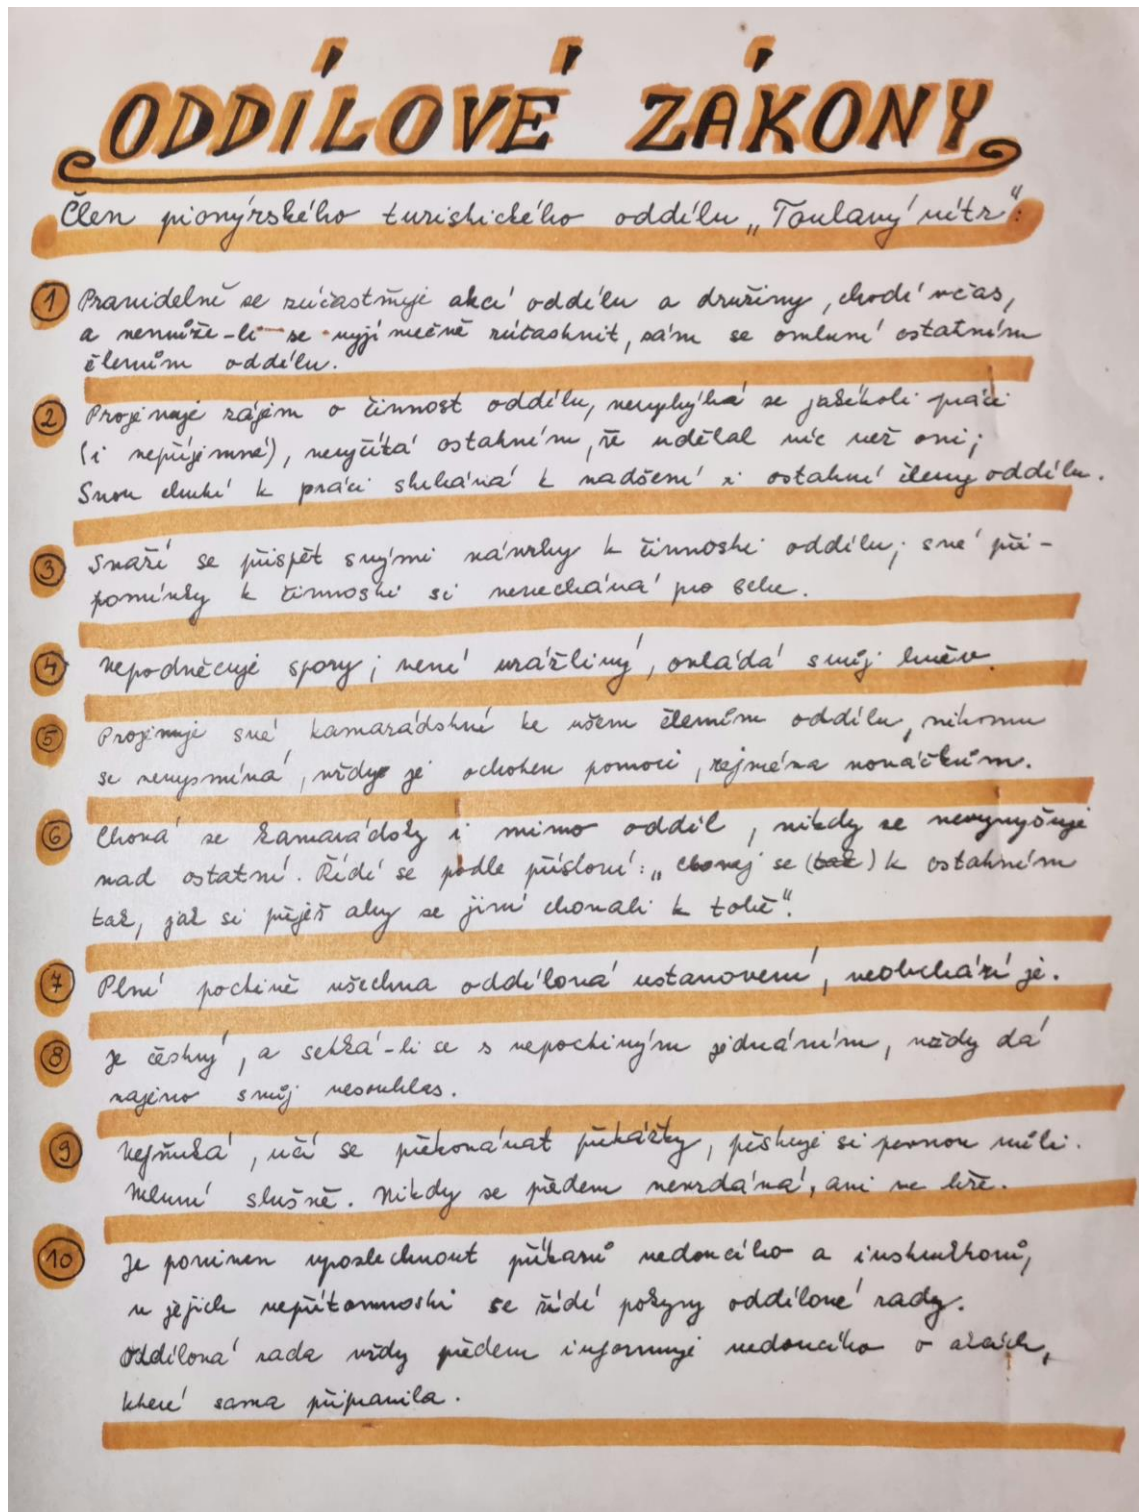 ODDÍLOVÉ ZÁKONY
Člen pionýrského turistického oddílu „Toulavý vítr“:
1 Pravidelně se zúčastňuje akcí oddílu a družiny, chodí včas,
a nemůže-li se vyjímečně zúčastnit, sám se omluví ostatním
členům oddílu.
2 Projevuje zájem o činnost oddílu, nevyhýbá se jakékoli práci
(i nepříjemné), nevyčítá ostatním, že udělal víc než oni;
Svou chutí k práci strhává k nadšení i ostatní členy oddílu.
3 Snaží se přispět svými návrhy k činnosti oddílu; své při-
pomínky k činnosti si nenechává pro sebe.
4 Nepodněcuje spory; není urážlivý, ovládá svůj hněv.
5 Projevuje své kamarádství ke všem členům oddílu, nikomu
se nevysmívá, vždy je ochoten pomoci, zejména nováčkům.
6 Chová se kamarádsky i mimo oddíl, nikdy se nevyvyšuje
nad ostatní. Řídí se podle přísloví: „chovej se (tak) k ostatním
tak, jak si přeješ aby se jiní chovali k tobě“.
7 Plní poctivě všechna oddílová ustanovení, neobchází je.
8 Je čestný, a setká-li se s nepoctivým jednáním, vždy dá
najevo svůj nesouhlas.
9 Nefňuká, učí se překonávat překážky, pěstuje si pevnou vůli.
Mluví slušně. Nikdy se předem nevzdává, ani ve hře.
10 Je povinen uposlechnout příkazů vedoucího a instruktorů,
v jejich nepřítomnosti se řídí pokyny oddílové rady.
Oddílová rada vždy předem informuje vedoucího o akcích,
které sama připravila.